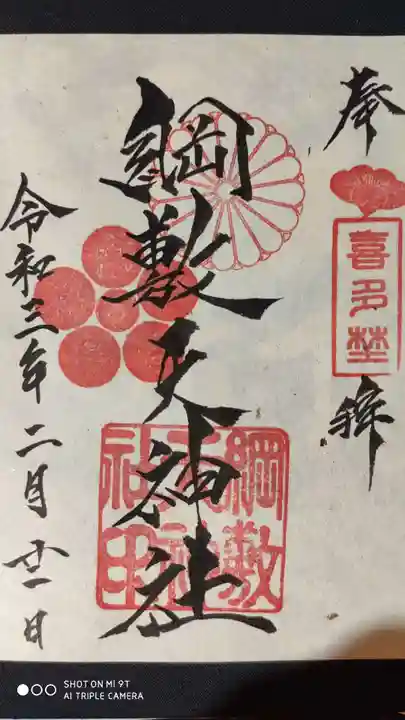 奉拝
喜多埜
綱敷天神社
綱敷天神社印
令和三年二月廿一日
SHOT ON MI 9T
AI TRIPLE CAMERA